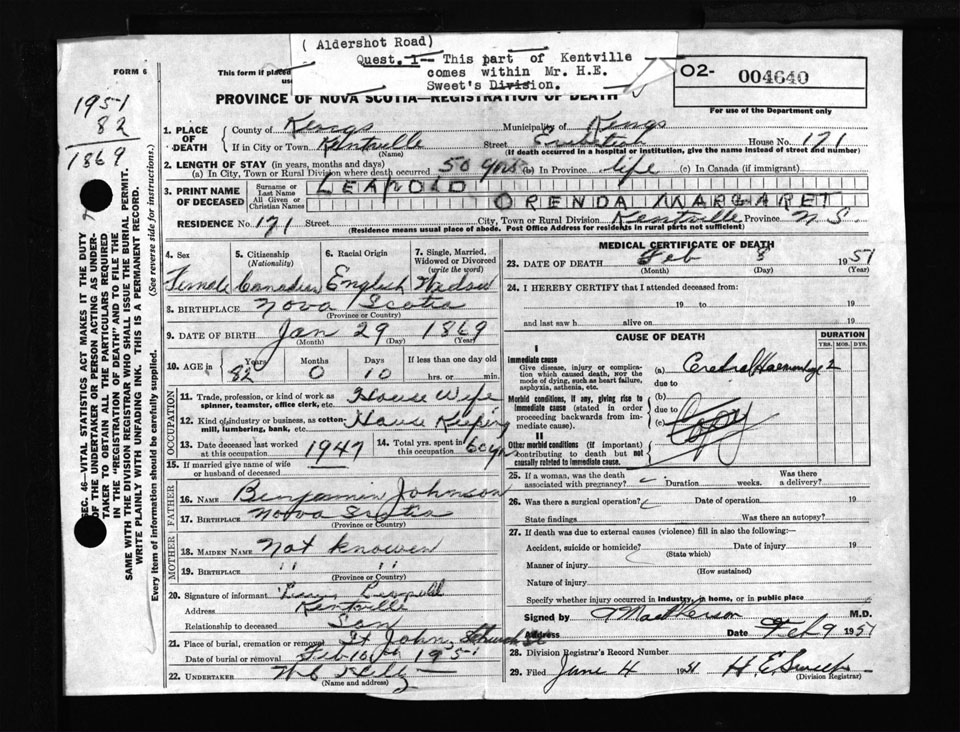 ( Aldershot Road)
Quest. 1-- This part of Kentville
comes within Mr. H.E.
Sweet's Division.
FORM 6
This form if placed
use
O2- 004640
For use of the Department only
PROVINCE OF NOVA SCOTIA—REGISTRATION OF DEATH
1951
82
1869
SEC. 46—VITAL STATISTICS ACT MAKES IT THE DUTY
OF THE UNDERTAKER OR PERSON ACTING AS UNDER-
TAKER TO OBTAIN ALL THE PARTICULARS REQUIRED
IN THE "REGISTRATION OF DEATH" AND TO FILE THE
SAME WITH THE DIVISION REGISTRAR WHO SHALL ISSUE THE BURIAL PERMIT.
WRITE PLAINLY WITH UNFADING INK. THIS IS A PERMANENT RECORD.
Every item of information should be carefully supplied. (See reverse side for instructions.)
1. PLACE OF DEATH
County of Kings Municipality of Kings
If in City or Town Kentville Street House No. 171
(Name) (If death occurred in a hospital or institution, give the name instead of street and number)
2. LENGTH OF STAY (in years, months and days)
(a) In City, Town or Rural Division where death occurred 50 yrs (b) In Province life (c) In Canada (if immigrant)
3. PRINT NAME OF DECEASED
Surname or Last Name LEAPOLD
All Given or Christian Names ORENDA MARGARET
RESIDENCE No. 171 Street City, Town or Rural Division Kentville Province N.S.
(Residence means usual place of abode. Post Office Address for residents in rural parts not sufficient)
4. Sex 5. Citizenship (Nationality) 6. Racial Origin 7. Single, Married, Widowed or Divorced (write the word)
Female Canadian English Widow
8. BIRTHPLACE Nova Scotia
(Province or Country)
9. DATE OF BIRTH Jan 29 1869
(Month) (Day) (Year)
10. AGE in Years Months Days If less than one day old
82 0 10 hrs. or min.
OCCUPATION
11. Trade, profession, or kind of work as spinner, teamster, office clerk, etc. House Wife
12. Kind of industry or business, as cotton-mill, lumbering, bank, etc. House Keeping
13. Date deceased last worked at this occupation 1947 14. Total yrs. spent in this occupation 60 yrs
15. If married give name of wife or husband of deceased
FATHER
16. NAME Benjamin Johnson
17. BIRTHPLACE Nova Scotia
(Province or Country)
MOTHER
18. MAIDEN NAME Not knowen
19. BIRTHPLACE " "
(Province or Country)
20. Signature of informant Leopold
Address Kentville
Relationship to deceased Son
21. Place of burial, cremation or removal St John Church St
Date of burial or removal Feb 10 1951
22. UNDERTAKER
(Name and address)
MEDICAL CERTIFICATE OF DEATH
23. DATE OF DEATH Feb 8 1951
(Month) (Day) (Year)
24. I HEREBY CERTIFY that I attended deceased from:
19 to 19
and last saw h alive on 19
CAUSE OF DEATH DURATION
YRS. MOS. DYS.
I
Immediate cause
Give disease, injury or complication which caused death, NOT the mode of dying, such as heart failure, asphyxia, asthenia, etc.
(a) Cerebral Haemorrhage 2
due to
Morbid conditions, if any, giving rise to immediate cause (stated in order proceeding backwards from immediate cause).
(b)
due to
(c)
Copy
II
Other morbid conditions (if important) contributing to death but not causally related to immediate cause.
25. If a woman, was the death associated with pregnancy? Duration weeks. Was there a delivery?
26. Was there a surgical operation? Date of operation 19
State findings Was there an autopsy?
27. If death was due to external causes (violence) fill in also the following:
Accident, suicide or homicide? Date of injury 19
(State which)
Manner of injury
(How sustained)
Nature of injury
Specify whether injury occurred in industry, in home, or in public place
Signed by MacPherson M.D.
Address Date Feb 9 1951
28. Division Registrar's Record Number
29. Filed June 4 1951 H E Sweet
(Division Registrar)